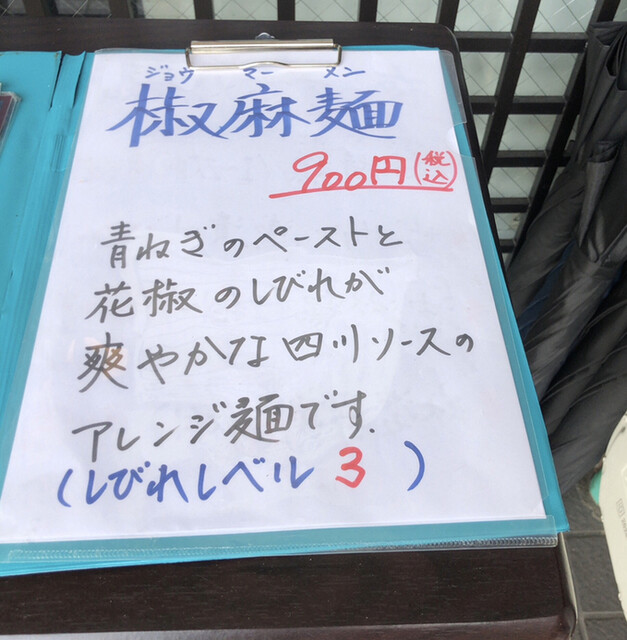 ジョウ マー メン
椒麻麺
900円(税込)
青ねぎのペーストと
花椒のしびれが
爽やかな四川ソースの
アレンジ麺です.
(しびれレベル 3 )